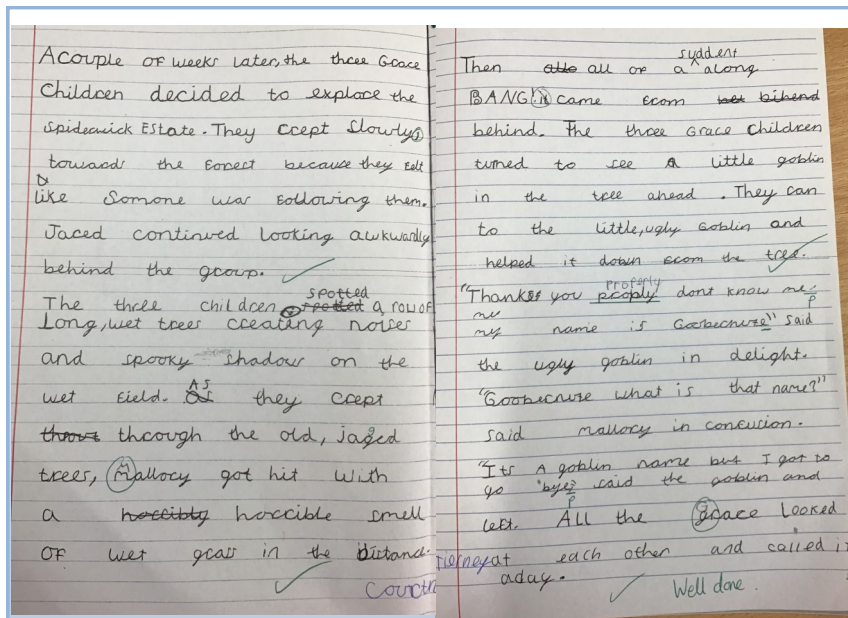 A couple of weeks later, the three Grace
Children decided to explore the
Spiderwick Estate. They crept Slowly
towards the forest because they felt
like Somone was following them.
Jared continued looking awkwardly
behind the group.
spotted
The three children spotted a row of
Long, wet trees creating noises
and spooky shadow on the
AS
wet field. as they crept
through the old, jaged
trees, Mallory got hit with
a horribly horrible smell
OF wet grass in the distand.
Courtn
suddent
Then all of a along
BANG! it came from bihend
behind. The three Grace Children
turned to see A little goblin
in the tree ahead. They ran
to the little, ugly Goblin and
helped it down from the tree.
properly
"Thanks you proply dont know me
my
my name is Goobernuze" said
P
the ugly goblin in delight.
"Goobernuze what is that name?"
said mallory in confusion.
"Its A goblin name but I got to
go 'bye' said the goblin and
P
left. All the grace looked
Tierney at each other and called it
a day.
Well done.